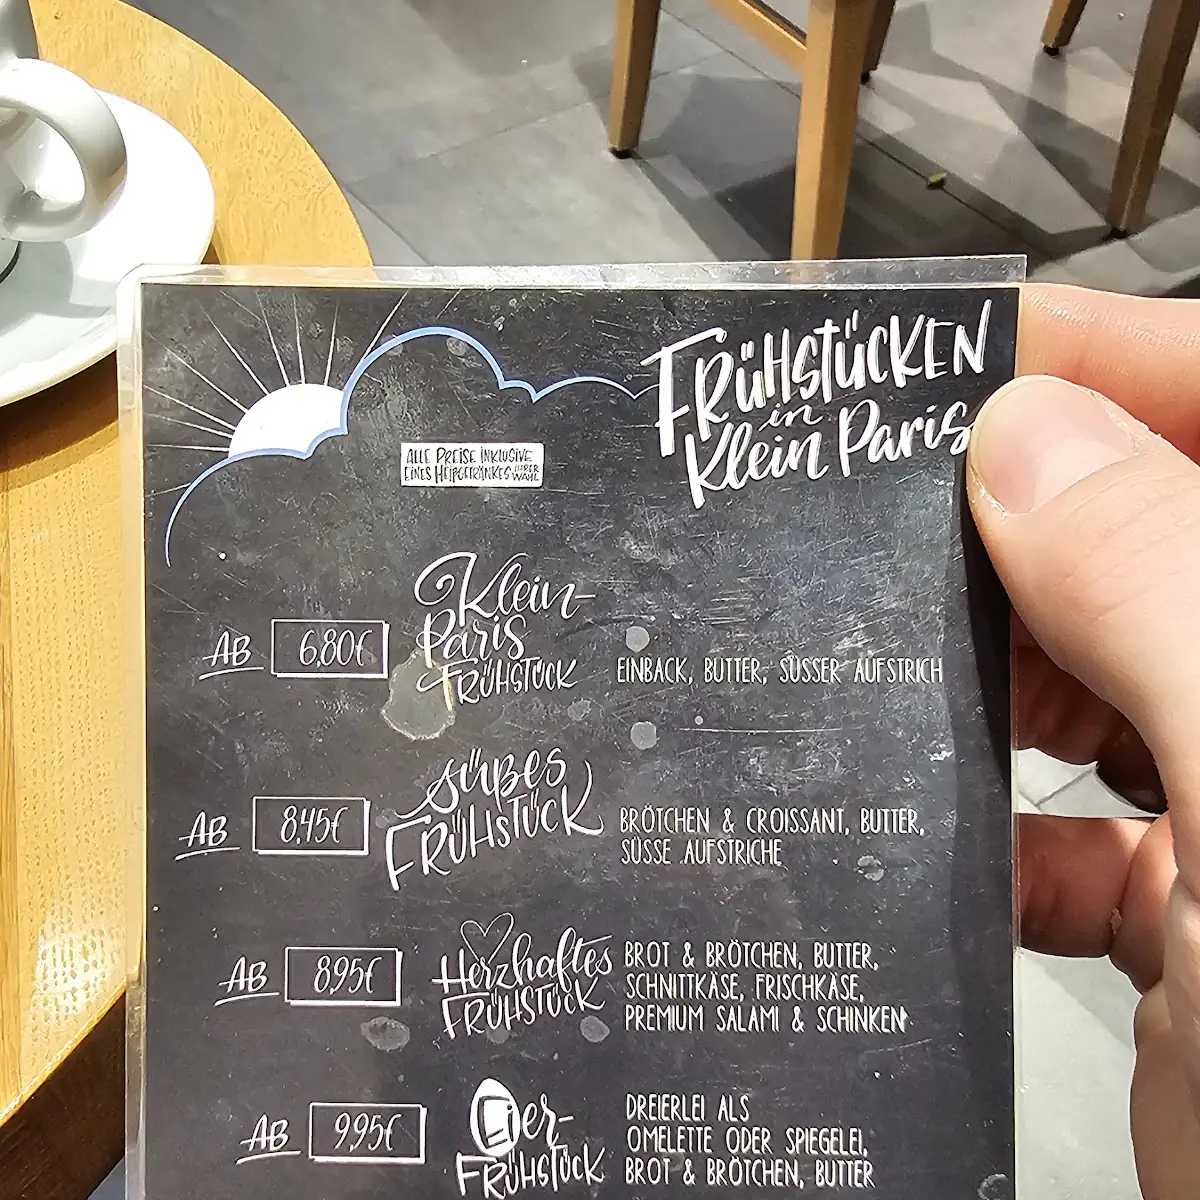 FRÜHSTÜCKEN
in
Klein Paris
ALLE PREISE INKLUSIVE
EINES HEIßGETRÄNKES IHRER WAHL
AB 6,80€
Klein-
Paris
FRÜHSTÜCK
EINBACK, BUTTER, SÜSSER AUFSTRICH
AB 8,45€
süßes
FRÜHSTÜCK
BRÖTCHEN & CROISSANT, BUTTER,
SÜSSE AUFSTRICHE
AB 8,95€
Herzhaftes
FRÜHSTÜCK
BROT & BRÖTCHEN, BUTTER,
SCHNITTKÄSE, FRISCHKÄSE,
PREMIUM SALAMI & SCHINKEN
AB 9,95€
Eier-
FRÜHSTÜCK
DREIERLEI ALS
OMELETTE ODER SPIEGELEI,
BROT & BRÖTCHEN, BUTTER